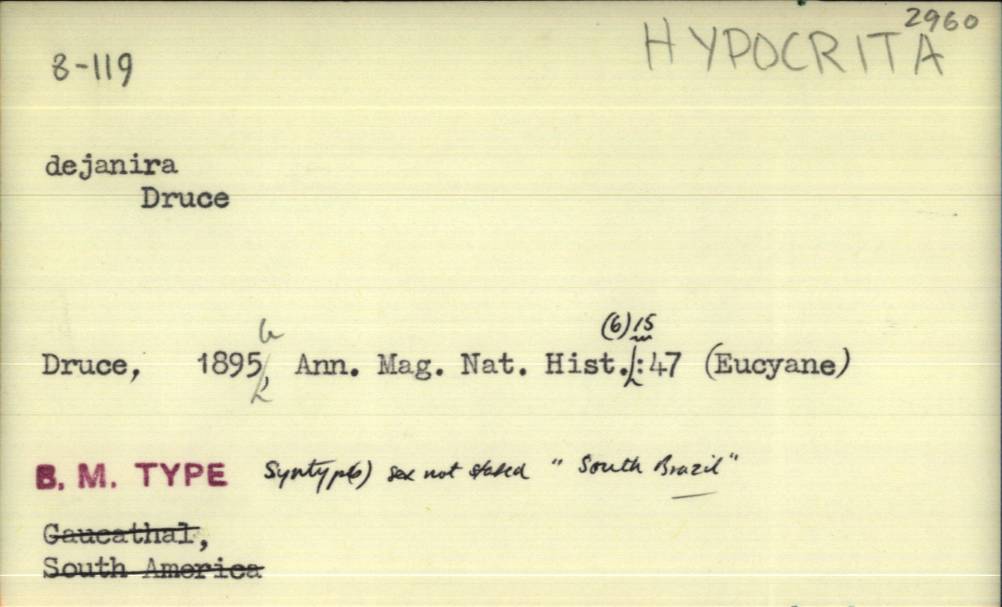 2960
HYPOCRITA
8-119
dejanira
Druce
Druce, 1895b, Ann. Mag. Nat. Hist. (6)15:47 (Eucyane)
B. M. TYPE Syntyp(s) sex not stated "South Brazil"
Gaucathal,
South America